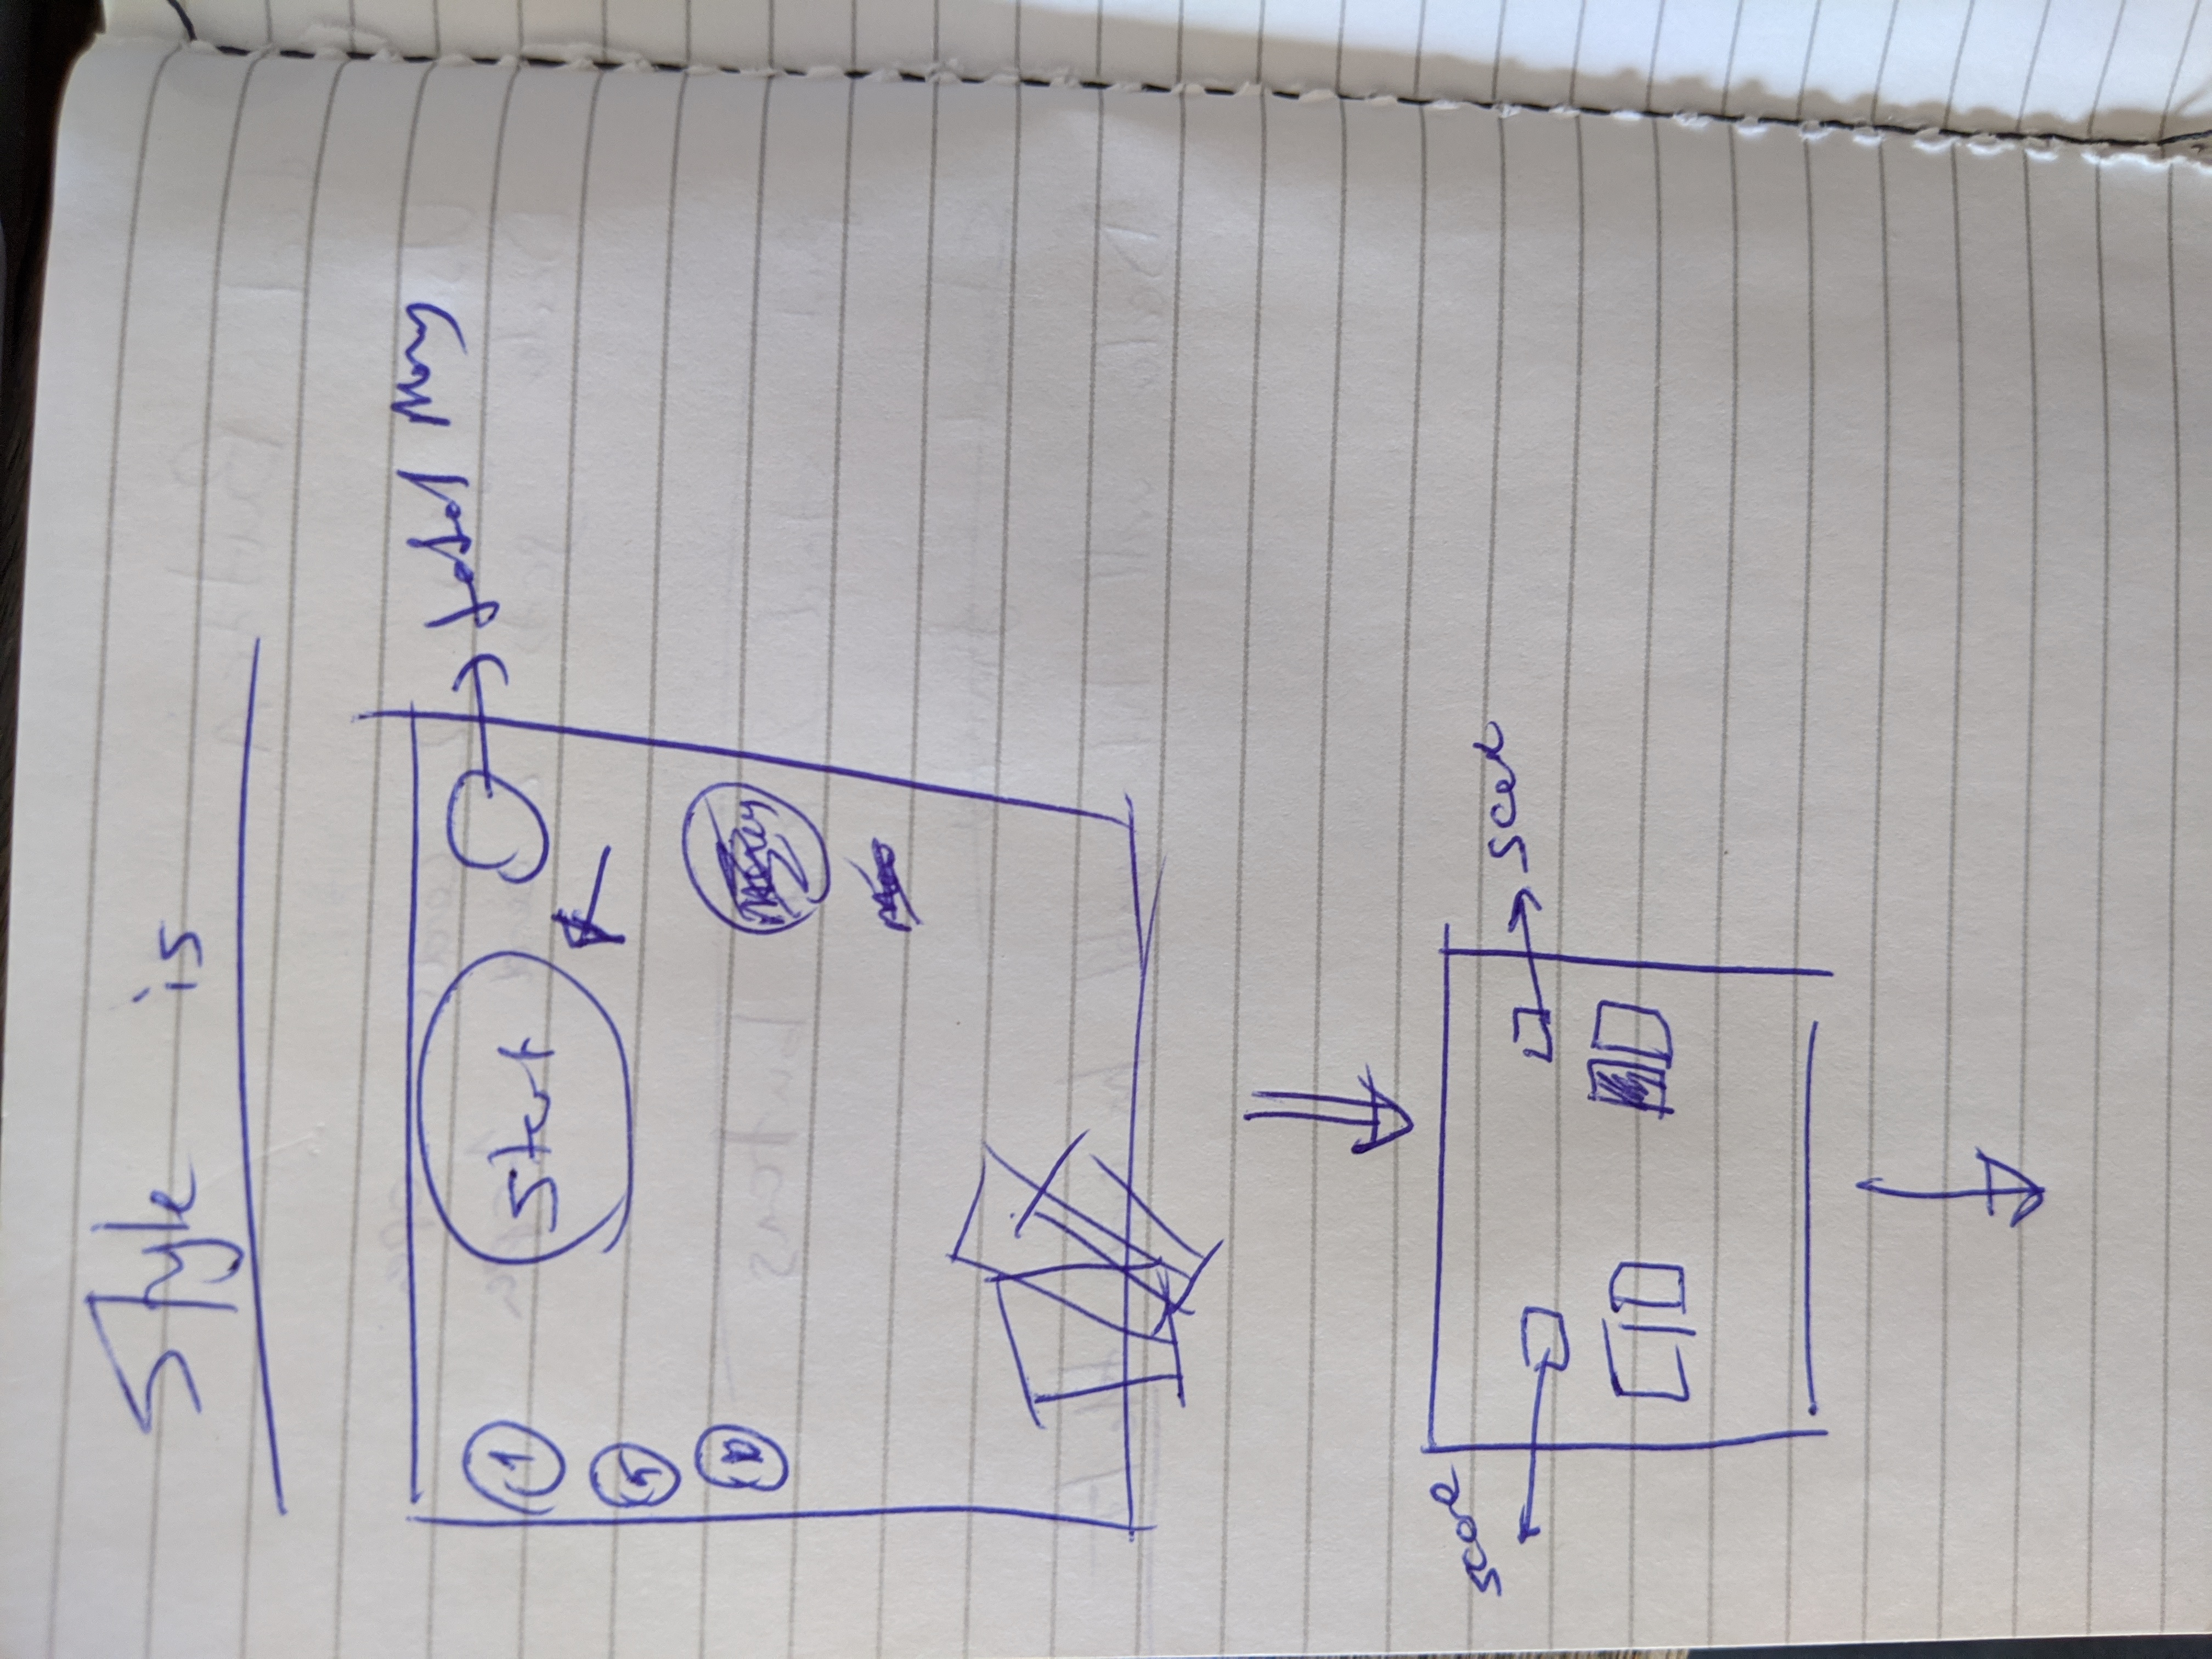 Style is
1
Start
total Mony
5
10
score
scor